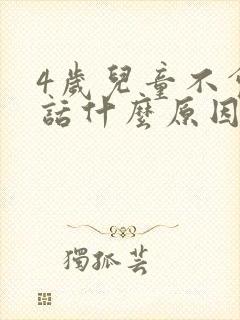 4歲兒童不
話什麼原因
獨孤芸